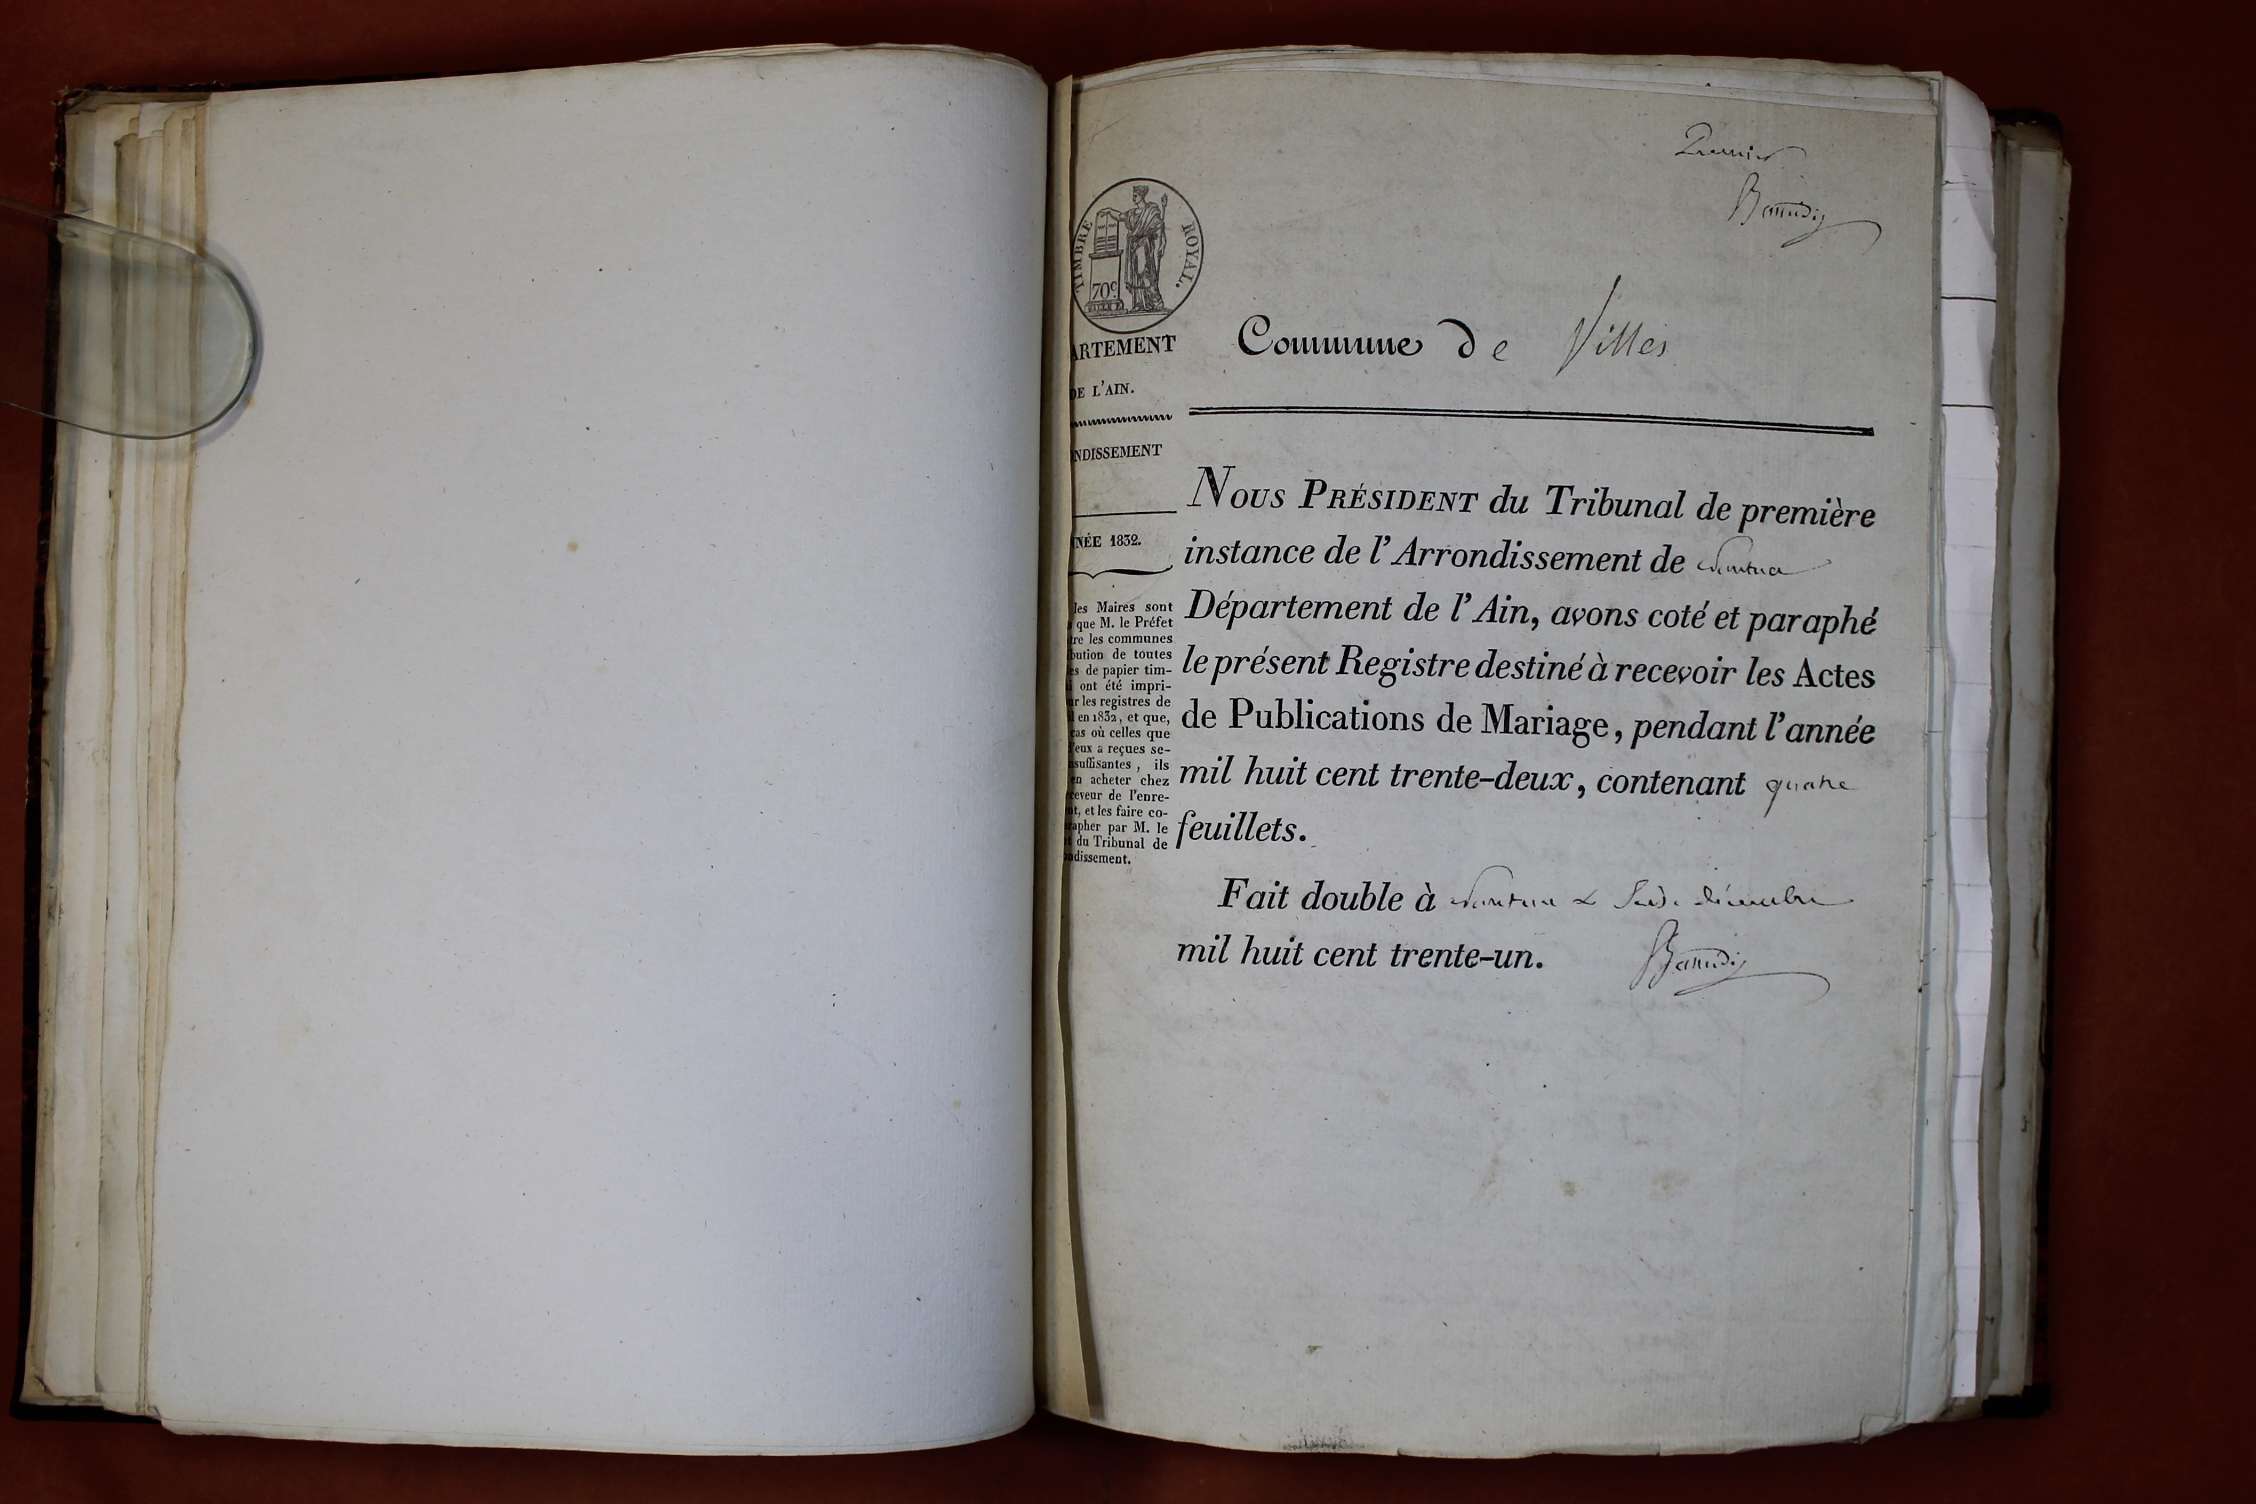 Premier
TIMBRE ROYAL.
70c
ARTEMENT
DE L'AIN.
NDISSEMENT
NÉE 1832.
les Maires sont
que M. le Préfet
tre les communes
bution de toutes
es de papier tim-
i ont été impri-
ur les registres de
l en 1832, et que,
cas où celles que
d'eux a reçues se-
nsuffisantes, ils
en acheter chez
ceveur de l'enre-
nt, et les faire co-
rapher par M. le
t du Tribunal de
ndissement.
Commune de Villes
NOUS PRÉSIDENT du Tribunal de première
instance de l'Arrondissement de Nantua
Département de l'Ain, avons coté et paraphé
le présent Registre destiné à recevoir les Actes
de Publications de Mariage, pendant l'année
mil huit cent trente-deux, contenant quatre
feuillets.
Fait double à Nantua le décembre
mil huit cent trente-un.